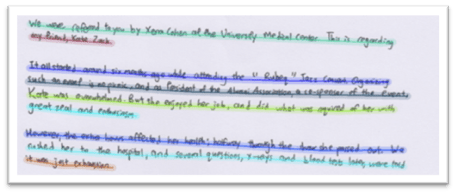 We were referred to you by Xena Cohen at the University Medical Center. This is regarding
my friend, Kate Zack.
It all started around six months ago while attending the "Rubeq" Jazz Concert. Organizing
such an event is no picnic, and as President of the Alumni Association, a co-sponsor of the event,
Kate was overworked. But she enjoyed her job, and did what was required of her with
great zeal and enthusiasm.
However, the extra hours affected her health; halfway through the show she passed out. We
rushed her to the hospital, and several questions, x-rays and blood tests later, were told
it was just exhaustion.